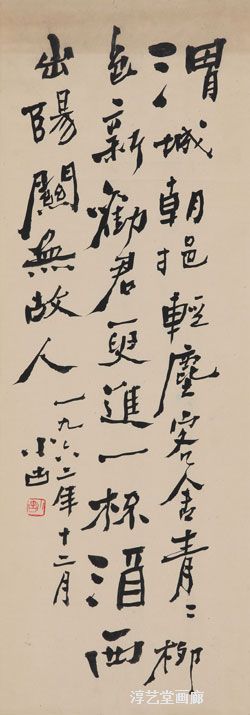 渭城朝挹輕塵客舍青〻柳
色新勸君更進一杯酒西
出陽關無故人
一九六二年十二月
淳艺堂画廊